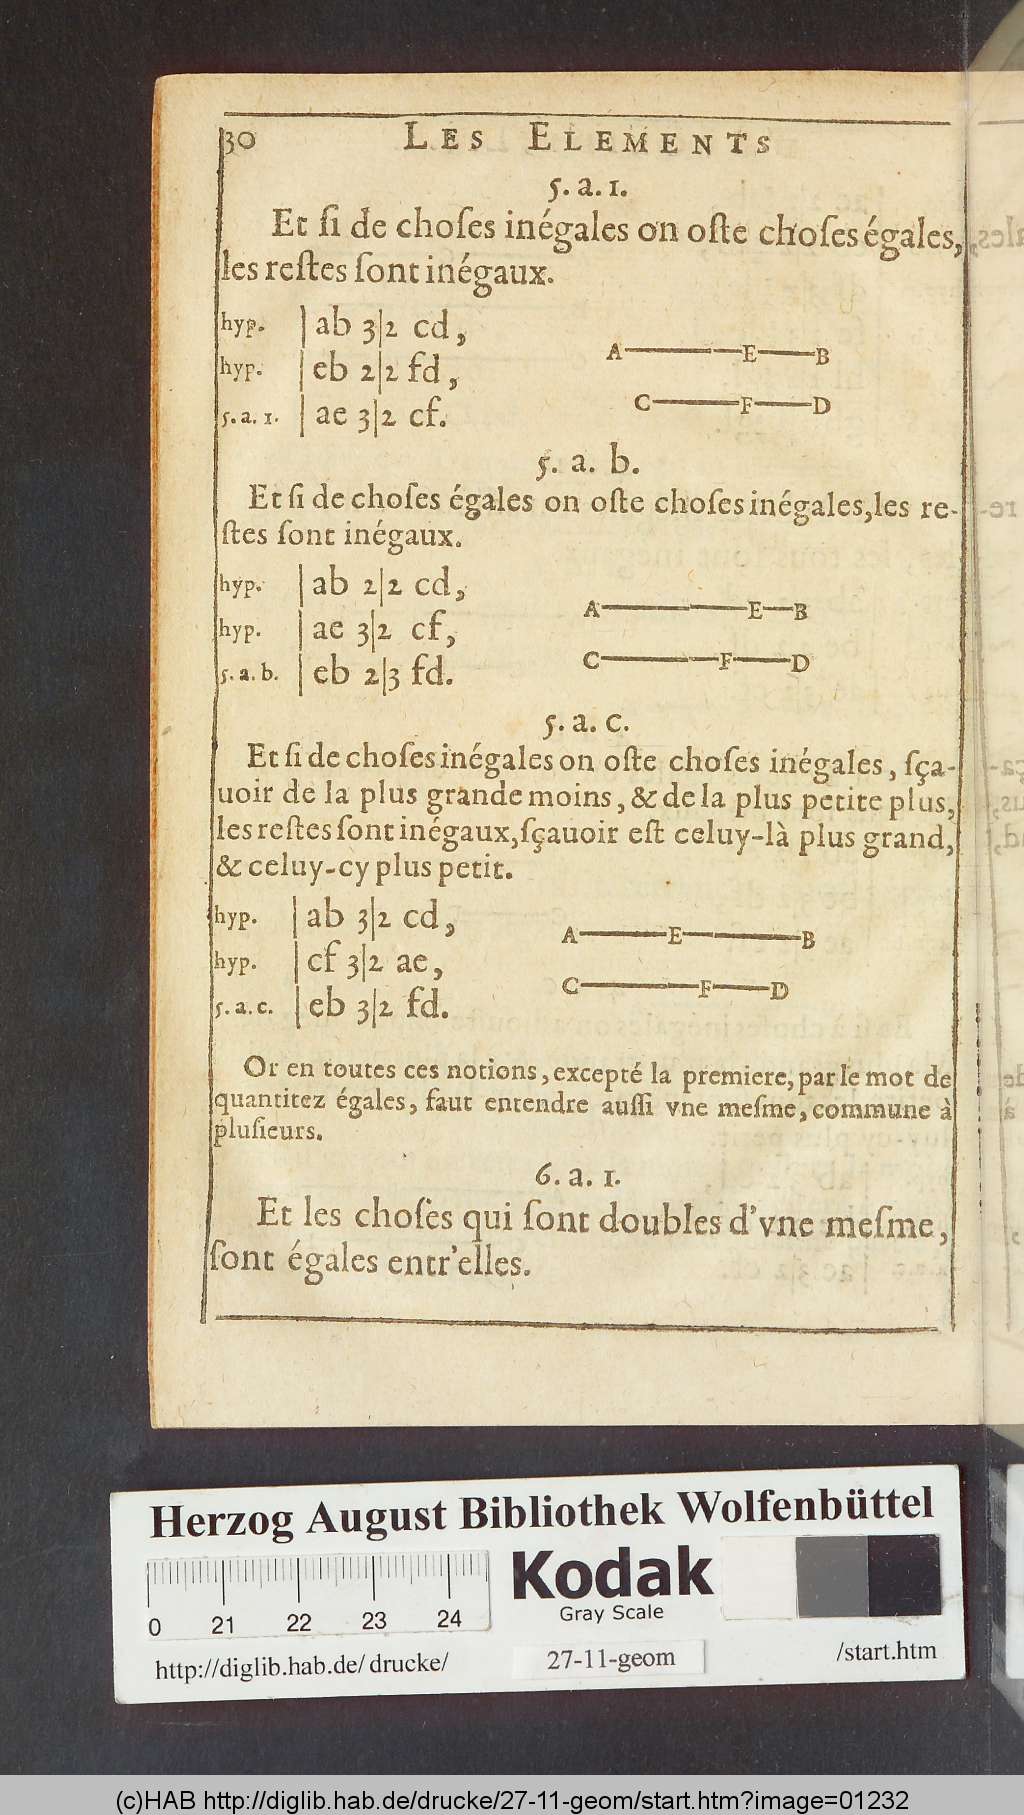 30 LES ELEMENTS
5. a. 1.
Et ſi de choſes inégales on oſte choſes égales,
les reſtes ſont inégaux.
hyp. | ab 3|2 cd,
hyp. | eb 2|2 fd,
5. a. 1. | ae 3|2 cf.
A E B
C F D
5. a. b.
Et ſi de choſes égales on oſte choſes inégales, les re-
ſtes ſont inégaux.
hyp. | ab 2|2 cd,
hyp. | ae 3|2 cf,
5. a. b. | eb 2|3 fd.
A E B
C F D
5. a. c.
Et ſi de choſes inégales on oſte choſes inégales, ſça-
uoir de la plus grande moins, & de la plus petite plus,
les reſtes ſont inégaux, ſçauoir eſt celuy-là plus grand,
& celuy-cy plus petit.
hyp. | ab 3|2 cd,
hyp. | cf 3|2 ae,
5. a. c. | eb 3|2 fd.
A E B
C F D
Or en toutes ces notions, excepté la premiere, par le mot de
quantitez égales, faut entendre auſſi vne meſme, commune à
pluſieurs.
6. a. 1.
Et les choſes qui ſont doubles d'vne meſme,
ſont égales entr'elles.
Herzog August Bibliothek Wolfenbüttel
Kodak
Gray Scale
0 21 22 23 24
http://diglib.hab.de/ drucke/ 27-11-geom /start.htm
(c)HAB http://diglib.hab.de/drucke/27-11-geom/start.htm?image=01232